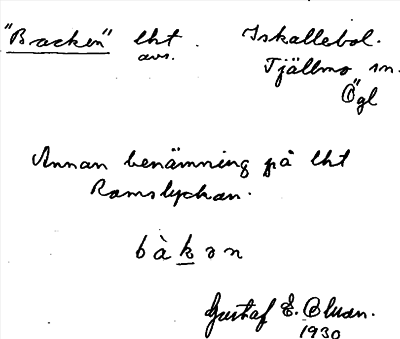 "Backen" lht
avs.
Iskallebol.
Tjällmo sn.
Ögl
Annan benämning på lht
Ramslyckan.
bàkən
Gustaf E.
1930